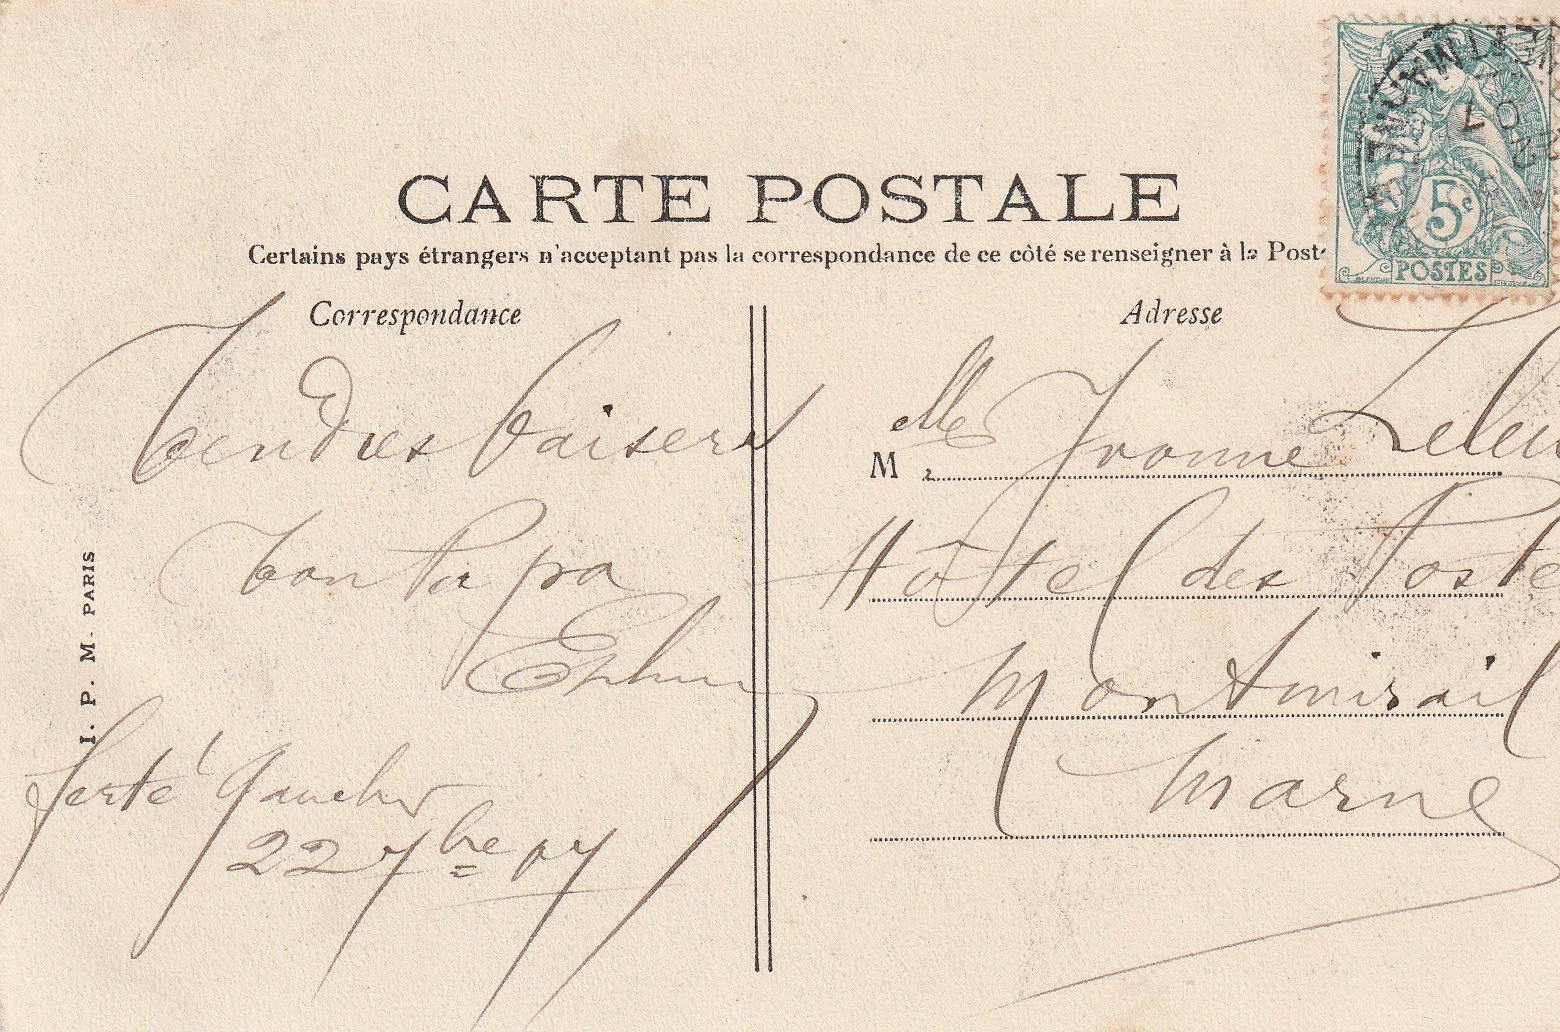 CARTE POSTALE
Certains pays étrangers n'acceptant pas la correspondance de ce côté se renseigner à la Poste
Correspondance
Tendres baisers
ton Papa
I. P. M. PARIS
ferté Gaucher
22 7bre 07
Adresse
M elle Yvonne Leleu
Hôtel des Poste
Montmirail
Marne
5c
POSTES
07